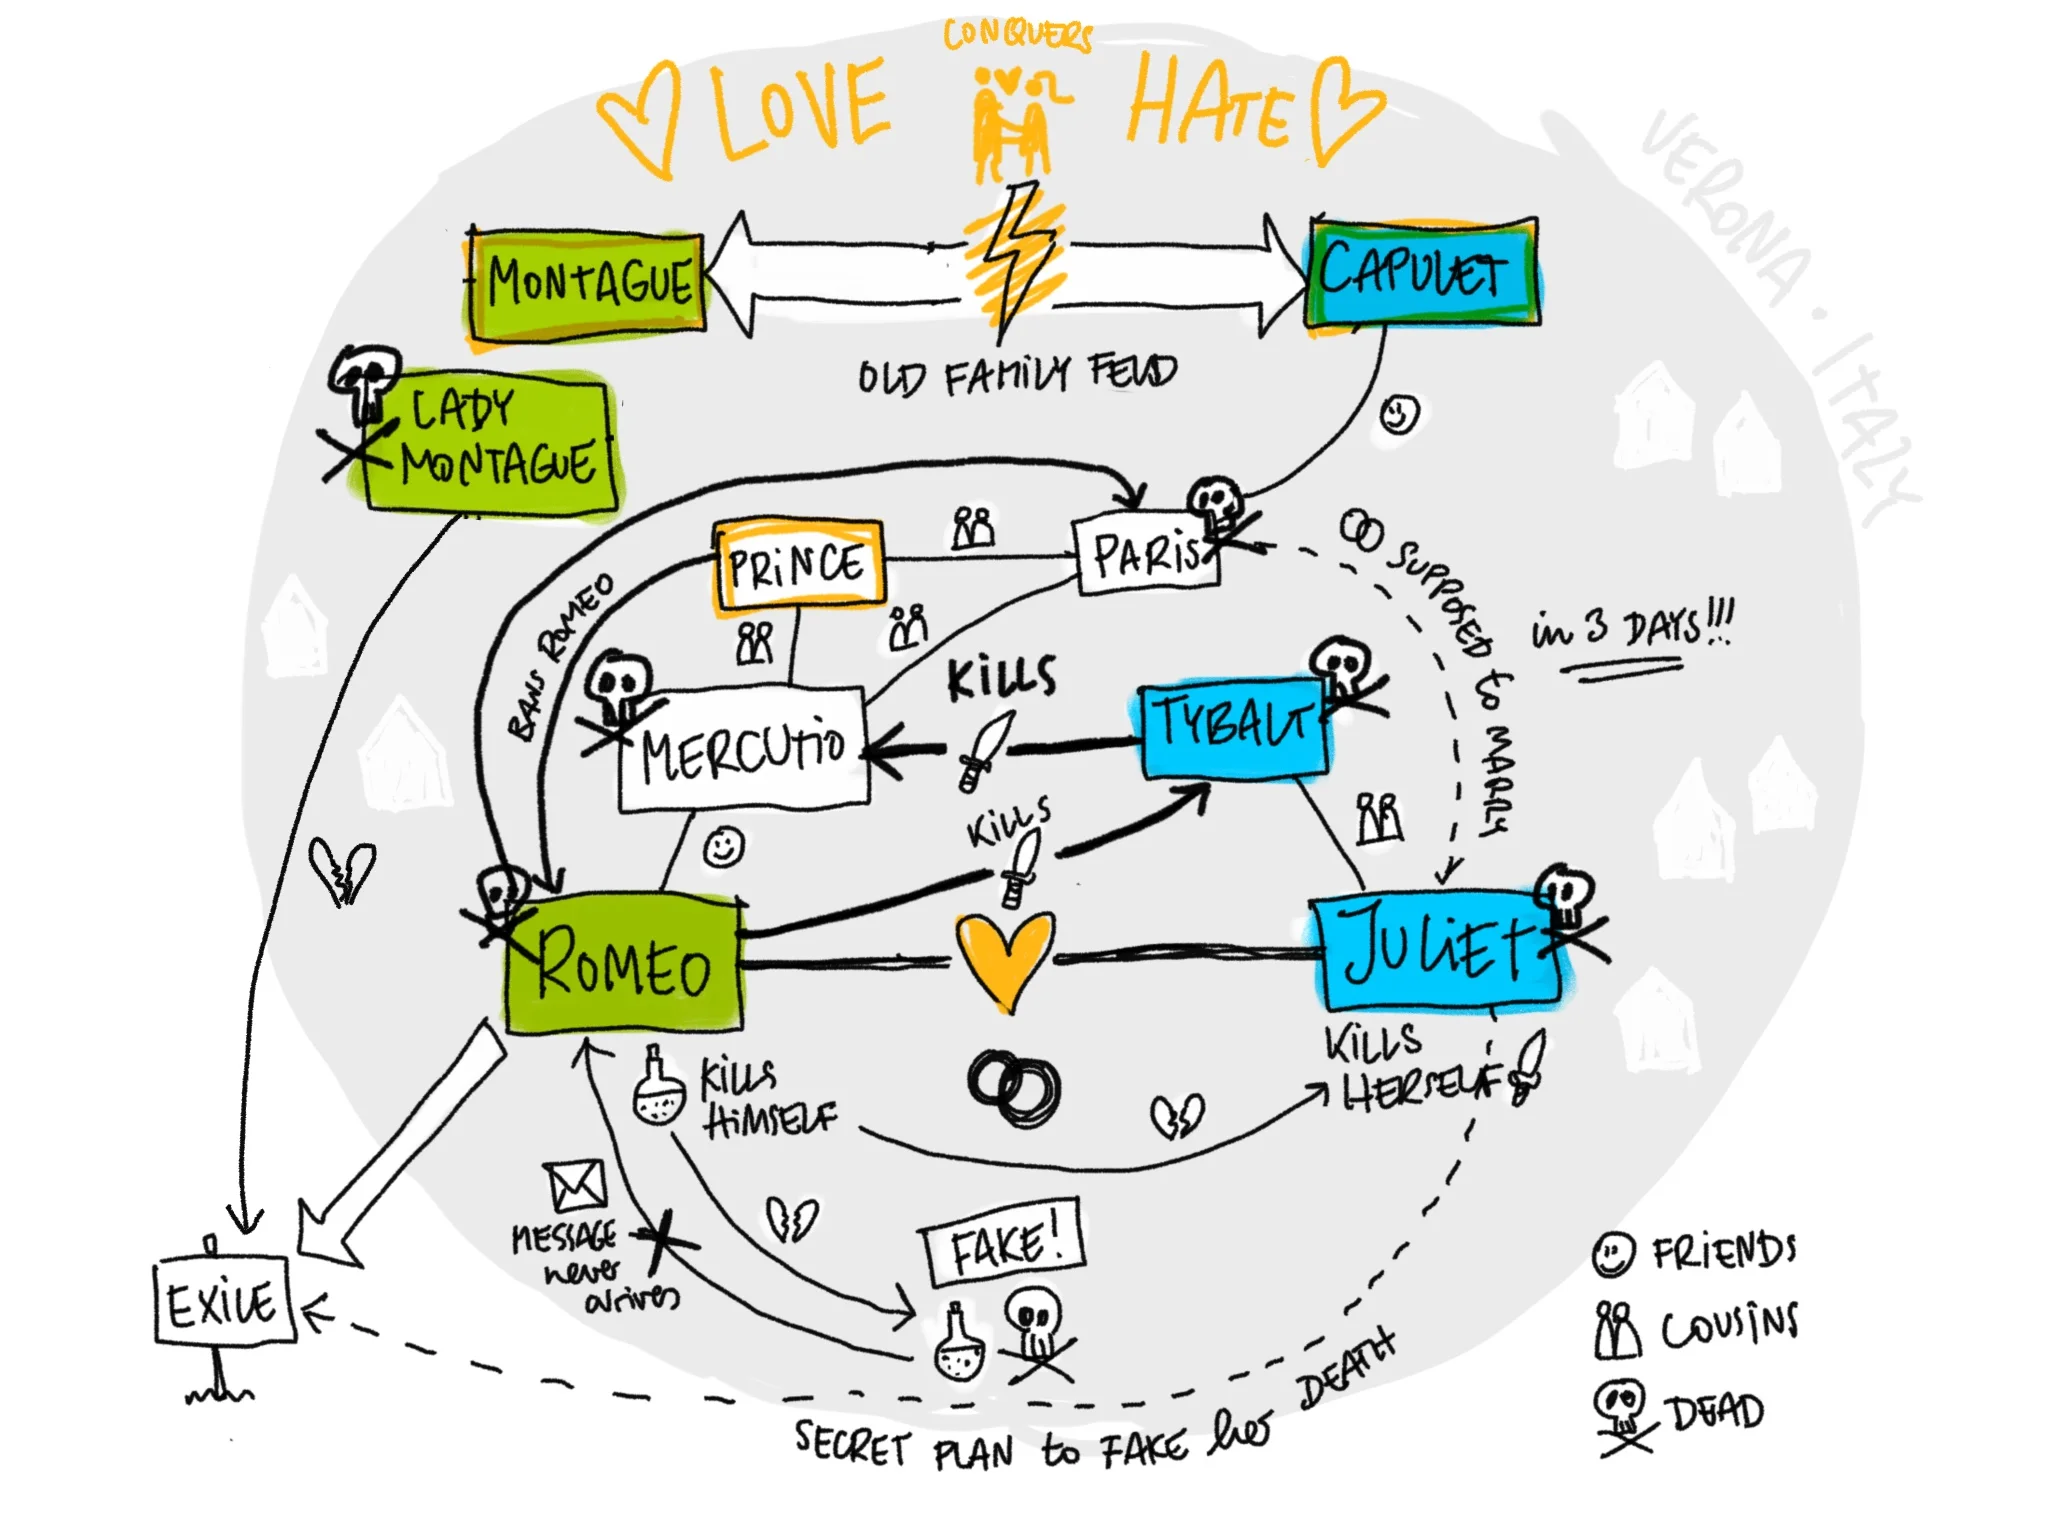 CONQUERS
LOVE HATE
VERONA • ITALY
MONTAGUE
CAPULET
OLD FAMILY FEUD
LADY
MONTAGUE
PRINCE
PARIS
BANS ROMEO
SUPPOSED to MARRY
in 3 DAYS!!!
KILLS
MERCUTIO
TYBALT
KILLS
ROMEO
JULIET
KILLS
HIMSELF
KILLS
HERSELF
MESSAGE
never
arrives
FAKE!
EXILE
SECRET PLAN to FAKE her DEATH
FRIENDS
COUSINS
DEAD